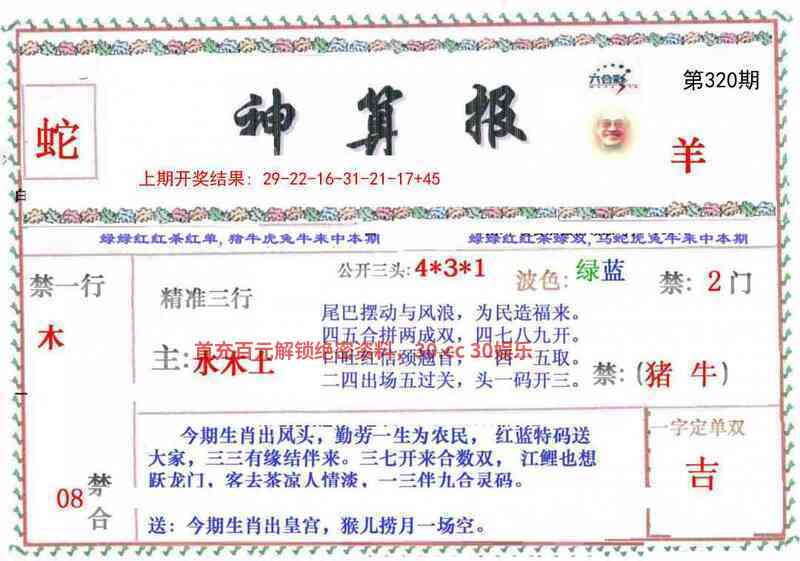 六合彩
第320期
神算报
蛇
羊
上期开奖结果: 29-22-16-31-21-17+45
白
绿绿红红茶红单,猪牛虎兔牛来中本期
绿红红茶绿双,马蛇虎兔牛来中本期
禁一行
木
精准三行
公开三头: 4*3*1
波色: 绿蓝
禁: 2门
尾巴摆动与风浪，为民造福来。
四五合拼两成双，四七八九开。
主: 水木土
首充百元解锁绝密资料，30.cc 30娱乐
二四出场五过关，头一码开三。
禁: (猪 牛)
今期生肖出风头，勤劳一生为农民， 红蓝特码送
大家，三三有缘结伴来。三七开来合数双， 江鲤也想
跃龙门，客去茶凉人情淡，一三伴九合灵码。
送：今期生肖出皇宫，猴儿捞月一场空。
一字定单双
吉
08
禁合